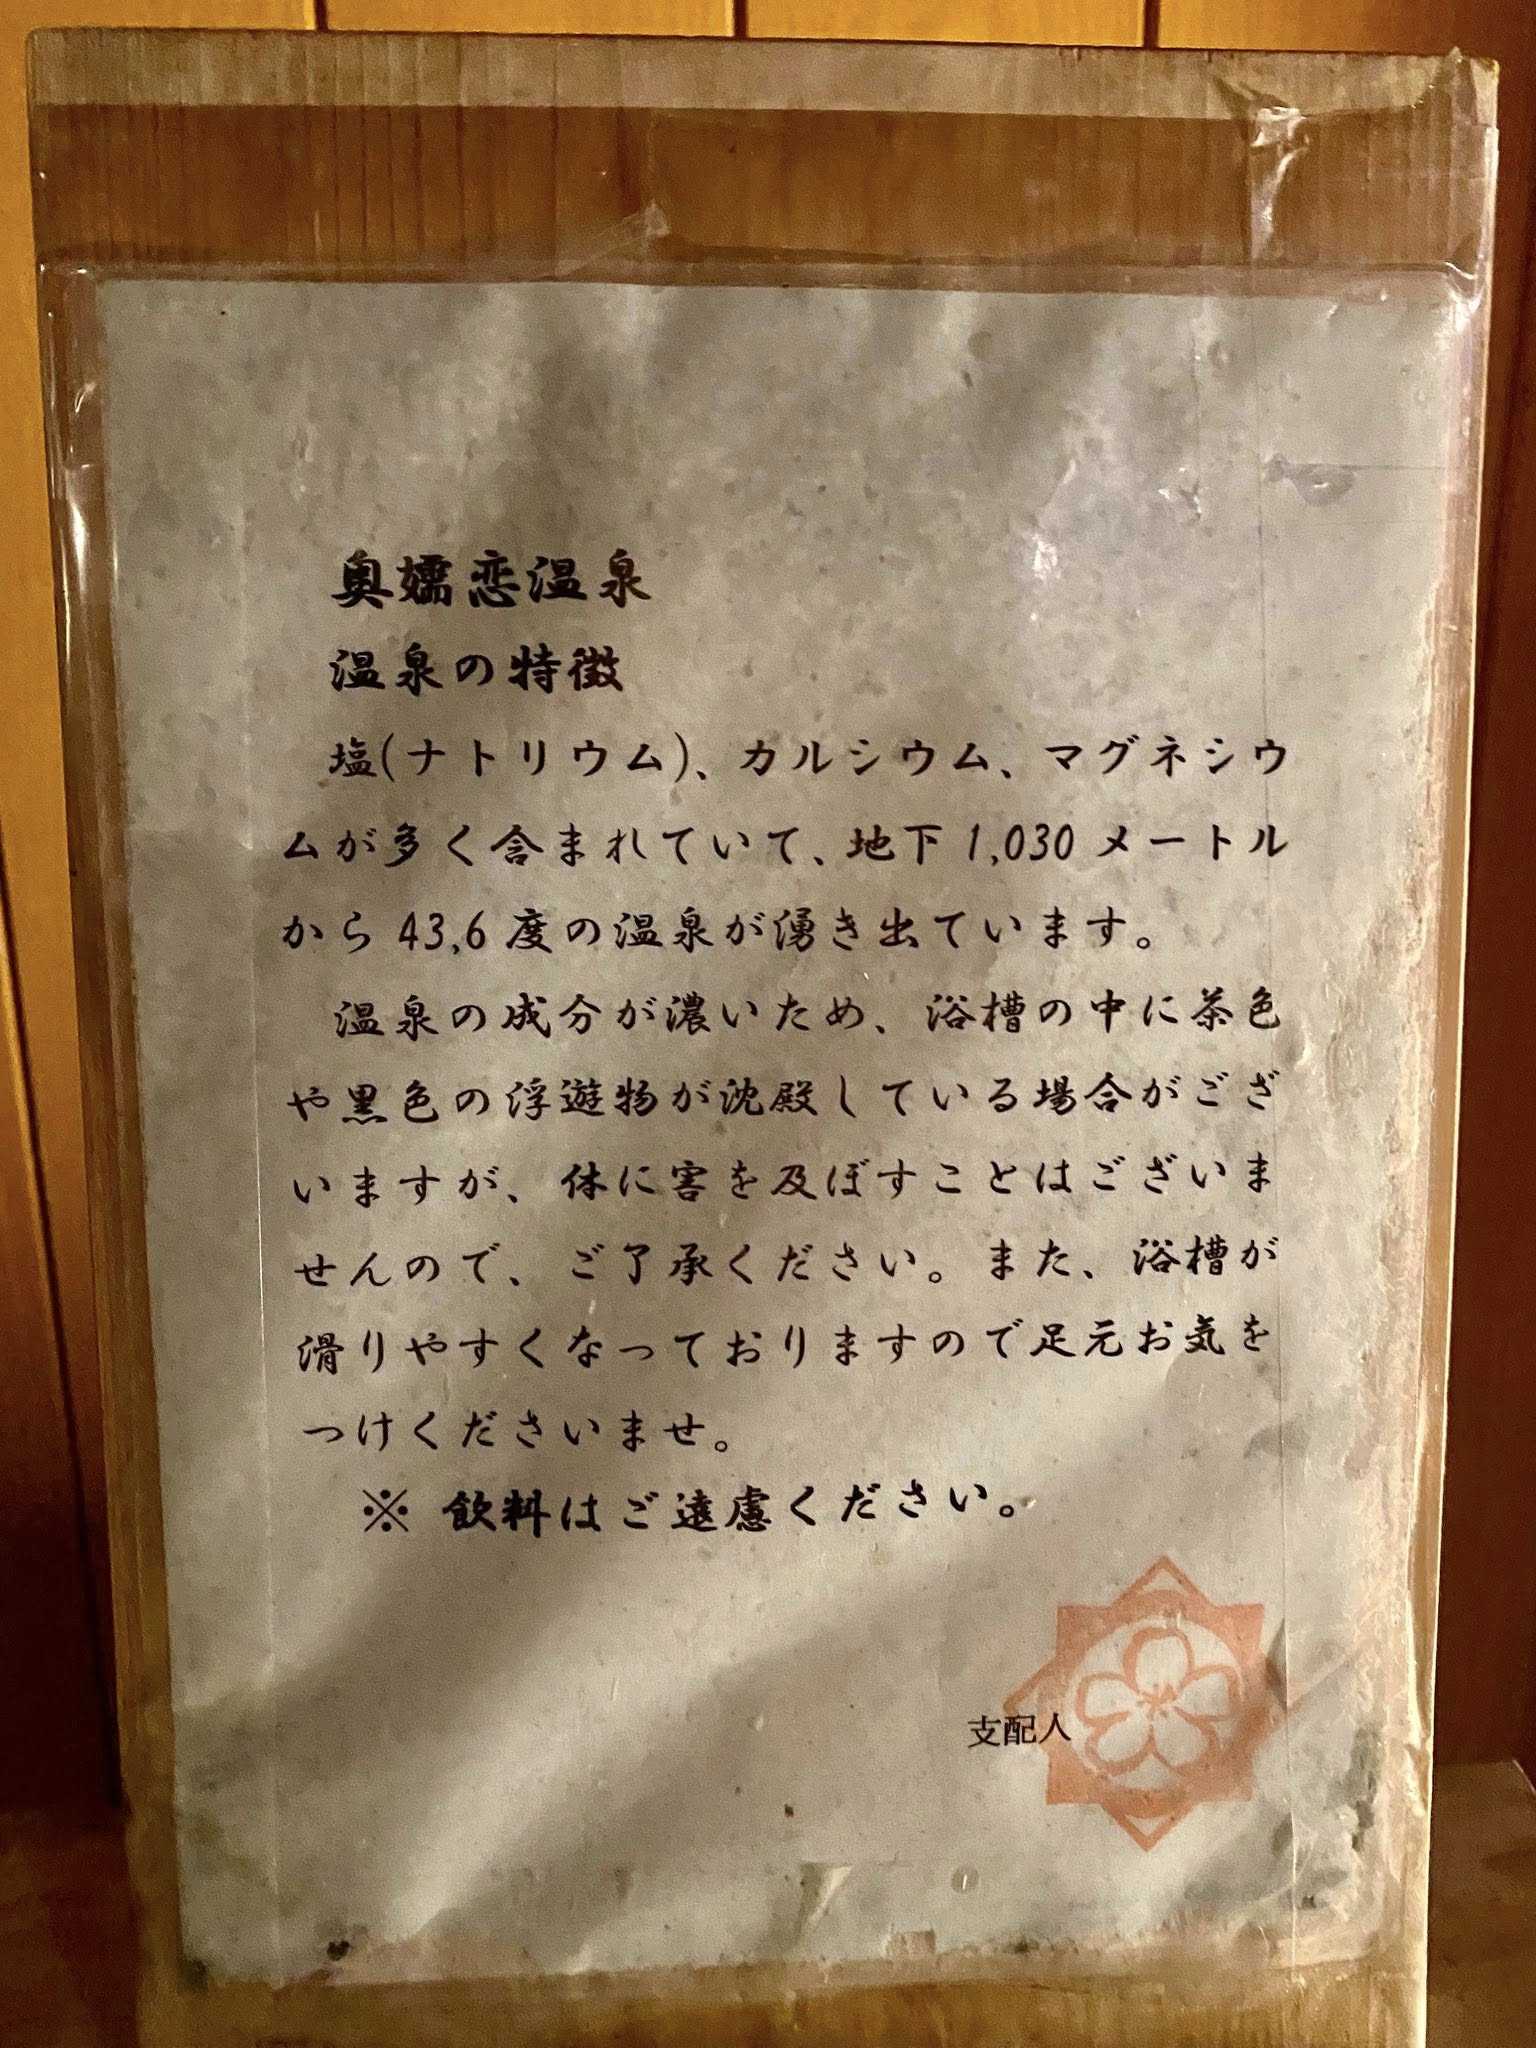 奥嬬恋温泉
温泉の特徴
塩(ナトリウム)、カルシウム、マグネシウ
ムが多く含まれていて、地下1,030メートル
から43,6度の温泉が湧き出ています。
温泉の成分が濃いため、浴槽の中に茶色
や黒色の浮遊物が沈殿している場合がござ
いますが、体に害を及ぼすことはございま
せんので、ご了承ください。また、浴槽が
滑りやすくなっておりますので足元お気を
つけくださいませ。
※ 飲料はご遠慮ください。
支配人